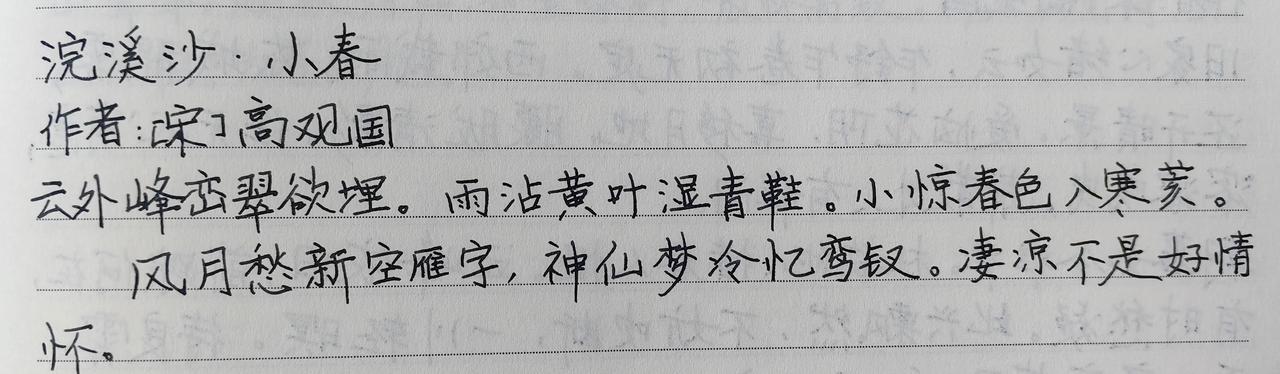 浣溪沙·小春
作者:[宋]高观国
云外峰峦翠欲埋。雨沾黄叶湿青鞋。小惊春色入寒荄。
风月愁新空雁字,神仙梦冷忆鸾钗。凄凉不是好情
怀。